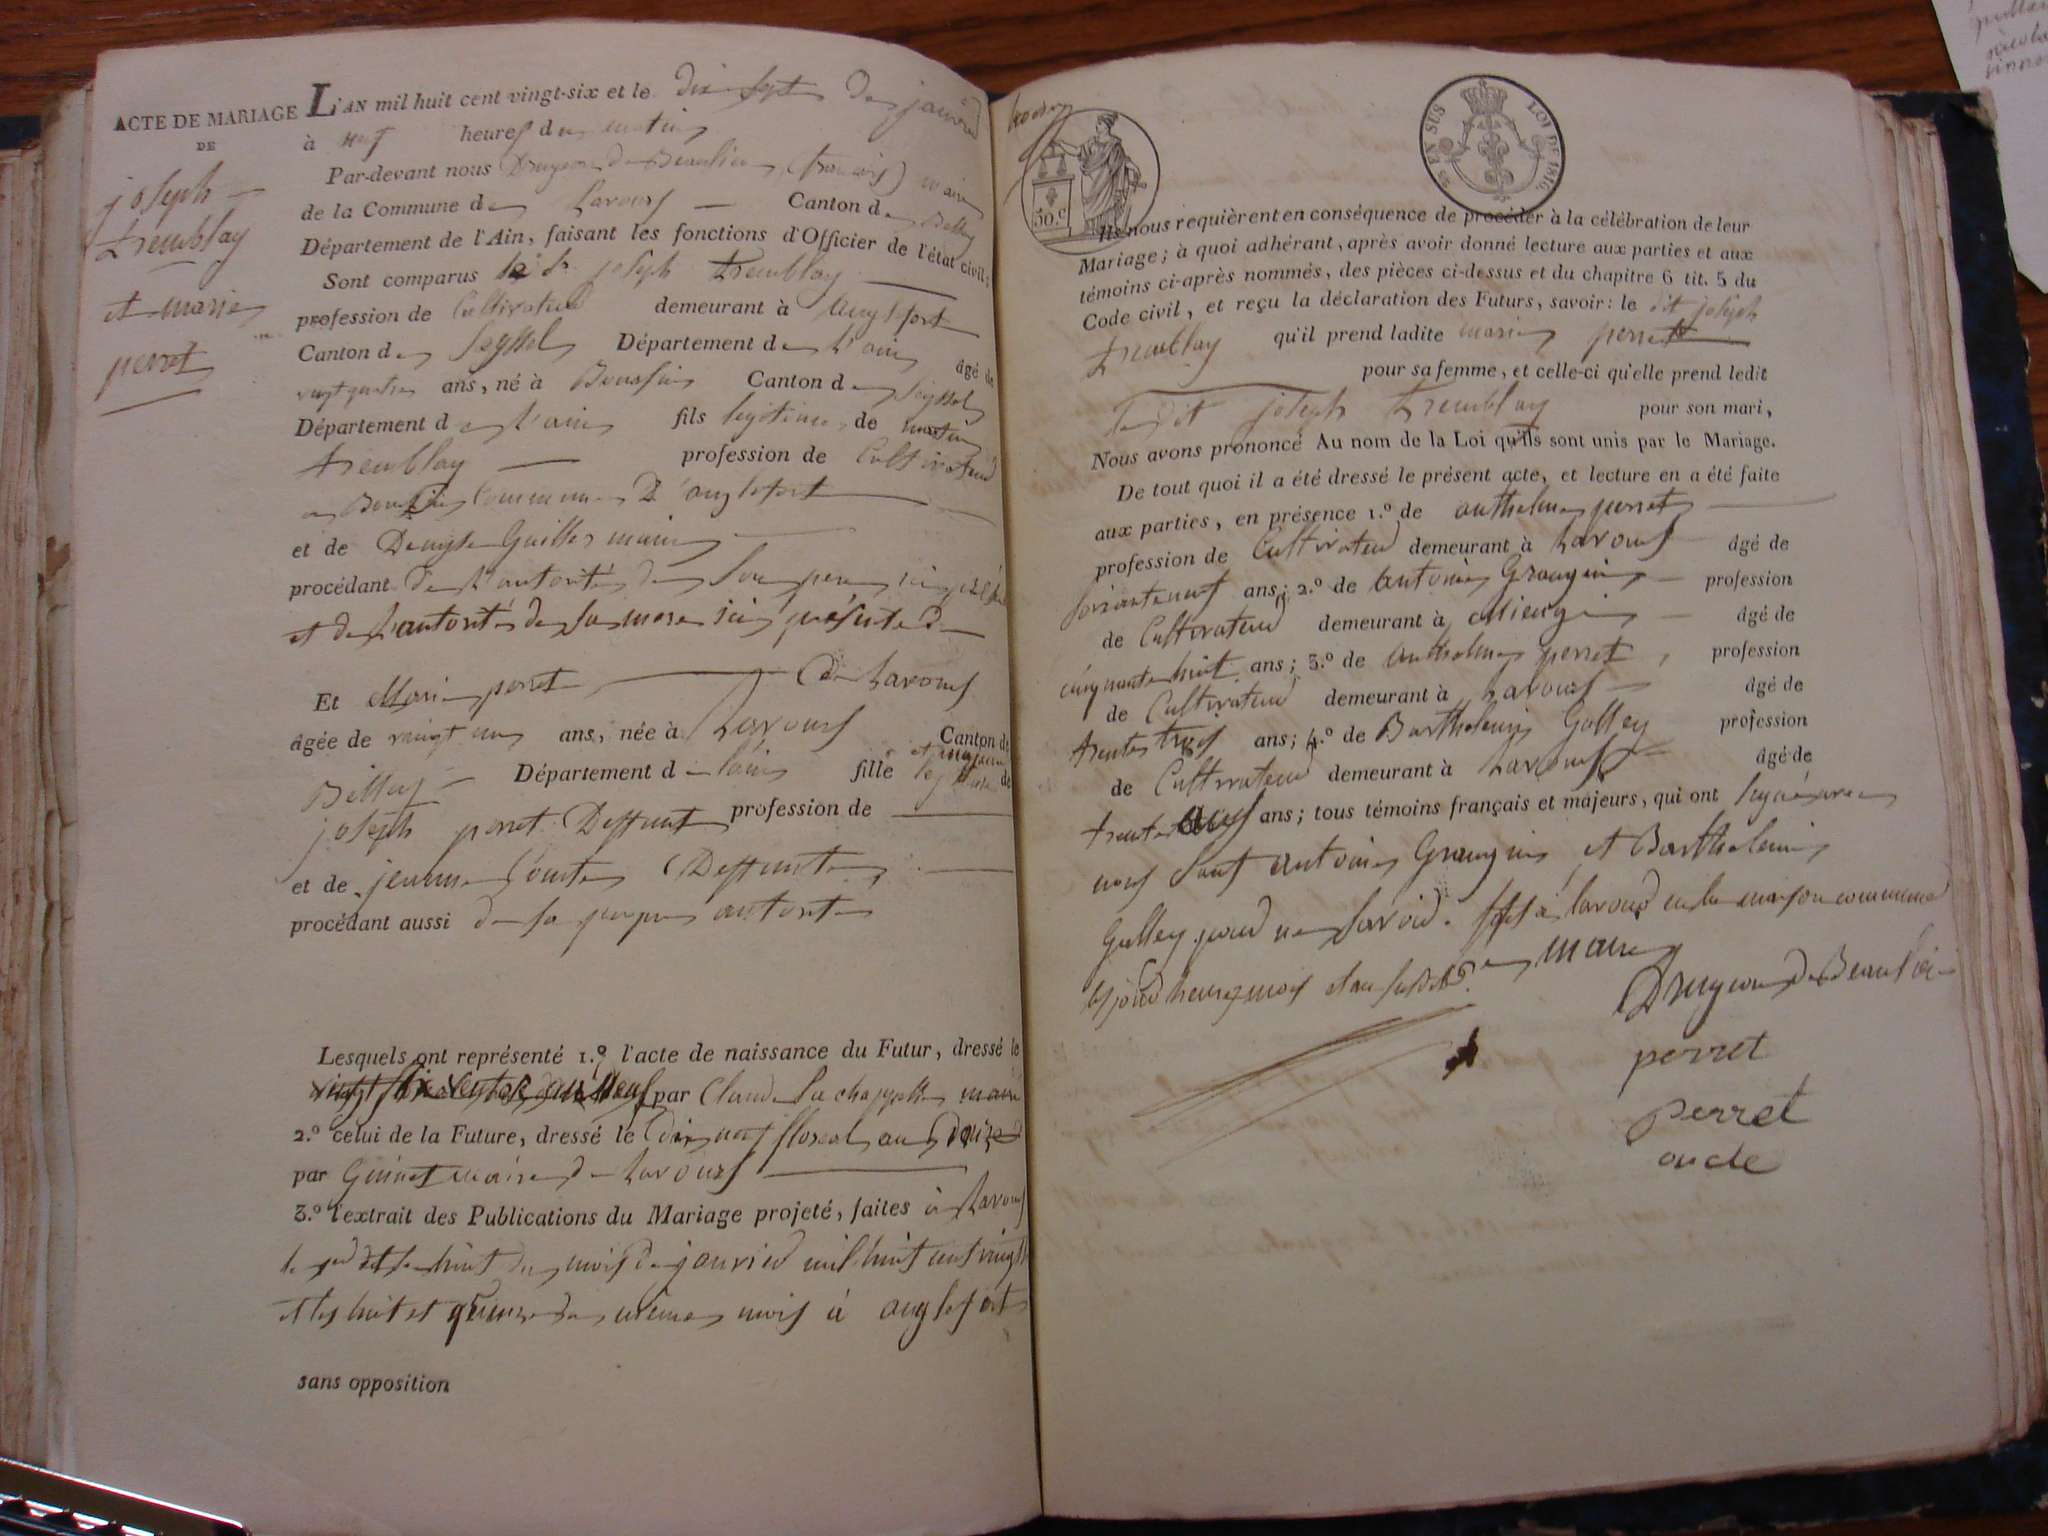 ACTE DE MARIAGE
DE
joseph
tremblay
et marie
perret
L'AN mil huit cent vingt-six et le dix sept de janvier
à neuf heures du matin
Par-devant nous Druyon de Beaulieu (françois) maire
de la Commune de Lavours Canton de Belley
Département de l'Ain, faisant les fonctions d'Officier de l'état civil:
Sont comparus le Sr joseph tremblay
profession de Cultivateur demeurant à anglefort
Canton de Seyssel Département de l'ain âgé de
vingt quatre ans, né à Canton de Seyssel
Département de l'ain fils legitime de
tremblay profession de Cultivateur
commune D'anglefort
et de Denyse Guillermain
procédant de l'autorité de son pere ici
et de l'autorité de sa mere ici présente
Et Marie perret de Lavours
âgée de vingt un ans, née à Lavours Canton de
Belley Département de lain fille legitime de
joseph perret Deffunt profession de
et de jeanne Deffunte
procédant aussi de sa propre autorité
Lesquels ont représenté 1.º l'acte de naissance du Futur, dressé le
par Claude La chapelle maire
2.º celui de la Future, dressé le dix neuf floreal an Douze
par Guinet maire de Lavours
3.º l'extrait des Publications du Mariage projeté, faites à Lavours
le huit du mois de janvier mil huit cent vingt
et les huit et quinze du même mois à anglefort
sans opposition
30.c
EN SUS LOI DE 1816.
Ils nous requièrent en conséquence de procéder à la célébration de leur
Mariage; à quoi adhérant, après avoir donné lecture aux parties et aux
témoins ci-après nommés, des pièces ci-dessus et du chapitre 6 tit. 5 du
Code civil, et reçu la déclaration des Futurs, savoir: le dit joseph
tremblay qu'il prend ladite marie perret
pour sa femme, et celle-ci qu'elle prend ledit
Le dit joseph tremblay pour son mari,
Nous avons prononcé Au nom de la Loi qu'ils sont unis par le Mariage.
De tout quoi il a été dressé le présent acte, et lecture en a été faite
aux parties, en présence 1.º de anthelme perret
profession de Cultivateur demeurant à Lavours âgé de
soixante neuf ans; 2.º de antoine Grangin profession
de Cultivateur demeurant à âgé de
cinquante huit ans; 3.º de anthelme perret, profession
de Cultivateur demeurant à Lavours âgé de
trente trois ans; 4.º de Barthelemi Golley profession
de Cultivateur demeurant à Lavours âgé de
trente ans; tous témoins français et majeurs, qui ont signé avec
nous sauf antoine Grangin et Barthelemi
Golley pour ne savoir. fait à lavours en la maison commune
les jour heure mois et an susdits maire
Druyon de Beaulieu
perret
perret
oncle